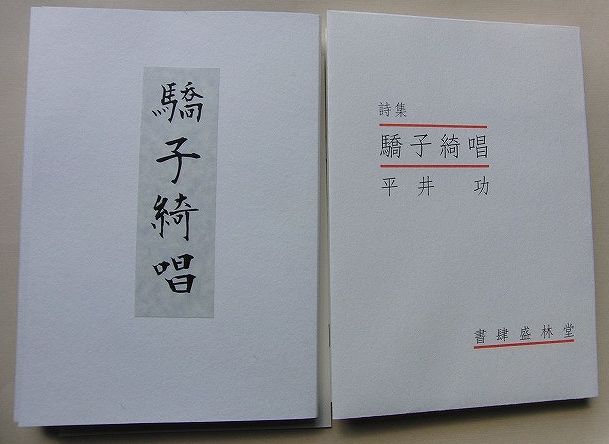 驕子綺唱
詩集
驕子綺唱
平井 功
書肆盛林堂